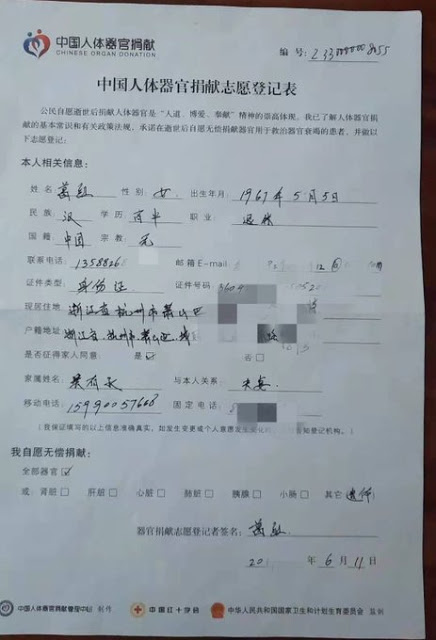 中国人体器官捐献
CHINESE ORGAN DONATION
编 号:
中国人体器官捐献志愿登记表
公民自愿逝世后捐献人体器官是“人道、博爱、奉献”精神的崇高体现。我已了解人体器官捐
献的基本常识和有关政策法规,承诺在逝世后自愿无偿捐献器官用于救治器官衰竭的患者,并做以
下志愿登记:
本人相关信息:
姓 名: 性 别:女 出生年月:1967年5月5日
民 族 汉 学 历 职 业 退休
国 籍 中国 宗 教: 无
联系电话:1358826 邮 箱 E-mail
证件类型: 身份证 证件号码:
现居住地: 浙江省杭州市萧山区
户籍地址: 浙江省杭州市萧山区
是否征得家人同意: 是☑ 否□
家属姓名: 与本人关系:
移动电话:15990057668 固 定 电 话:
(我保证填写的以上信息准确真实,如发生变更或个人意愿发生变化 告知登记机构。)
我自愿无偿捐献:
全部器官☑
或: 肾脏□ 肝脏□ 心脏□ 肺脏□ 胰腺□ 小肠□ 其它 遗体
器官捐献志愿登记者签名:
201 年 6 月 11 日
中国人体器官捐献管理中心 制作 中国红十字会 中华人民共和国国家卫生和计划生育委员会 监制